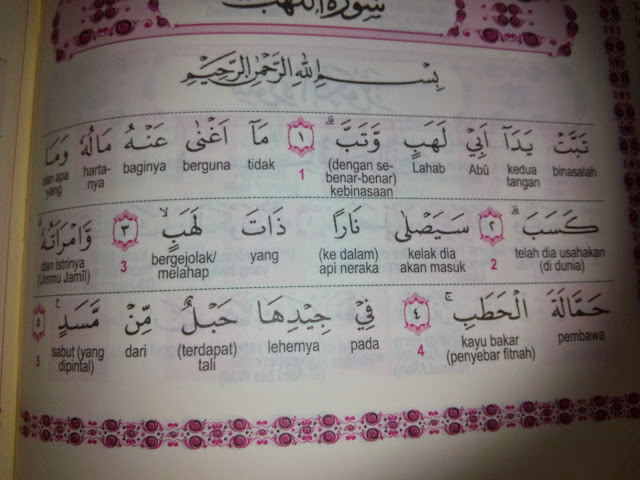 سورة اللهب
بِسْمِ اللهِ الرَّحْمٰنِ الرَّحِيْمِ
تَبَّتْ يَدَآ اَبِيْ لَهَبٍ وَّتَبَّۗ ١ مَآ اَغْنٰى عَنْهُ مَالُهٗ وَمَا
binasalah kedua tangan Abû Lahab (dengan se-benar-benar) kebinasaan 1 tidak berguna baginya harta-nya dan apa yang
كَسَبَۗ ٢ سَيَصْلٰى نَارًا ذَاتَ لَهَبٍۙ ٣ وَّامْرَاَتُهٗۗ
telah dia usahakan (di dunia) 2 kelak dia akan masuk (ke dalam) api neraka yang bergejolak/melahap 3 dan istrinya (Ummu Jamîl)
حَمَّالَةَ الْحَطَبِۚ ٤ فِيْ جِيْدِهَا حَبْلٌ مِّنْ مَّسَدٍ ٥
pembawa kayu bakar (penyebar fitnah) 4 pada lehernya (terdapat) tali dari sabut (yang dipintal) 5